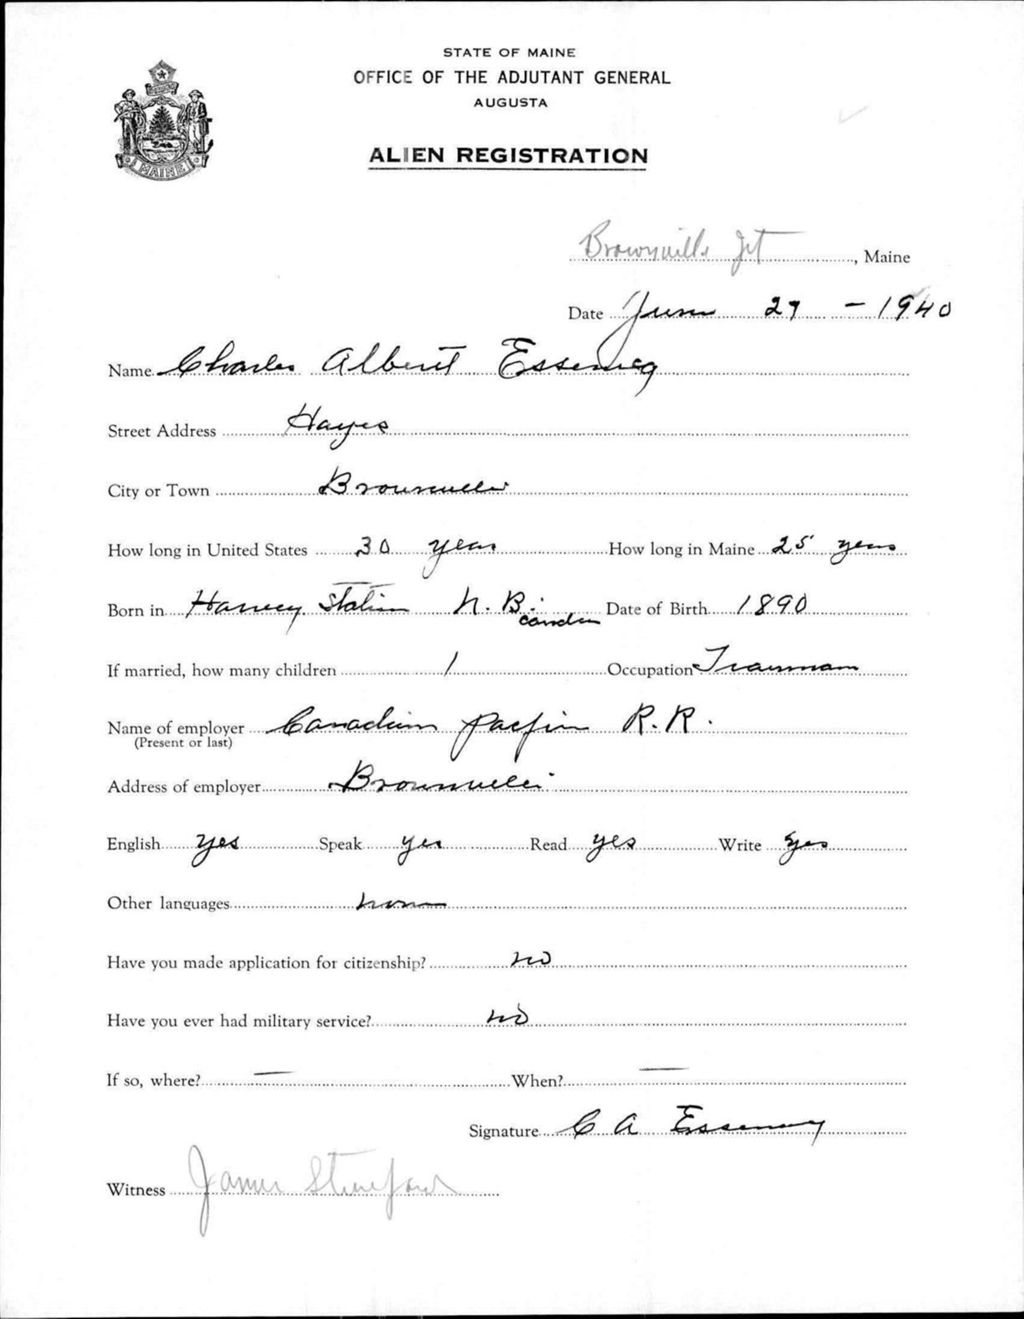 STATE OF MAINE
OFFICE OF THE ADJUTANT GENERAL
AUGUSTA
ALIEN REGISTRATION
MAINE
Brownville Jct, Maine
Date June 27 - 1940
Name Charles Albert
Street Address Hayes
City or Town Brownville
How long in United States 30 years How long in Maine 25 years
Born in Harvey Station N. B. Canada Date of Birth 1890
If married, how many children 1 Occupation Trainman
Name of employer Canadian Pacific R. R.
(Present or last)
Address of employer Brownville
English yes Speak yes Read yes Write yes
Other languages none
Have you made application for citizenship? no
Have you ever had military service? no
If so, where? — When? —
Signature C A
Witness James